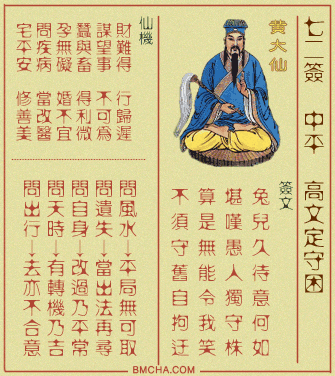 七二簽 中平 高文定守困
黃大仙
簽文
兔兒久待意何如
堪嘆愚人獨守株
算是無能令我笑
不須守舊自拘迂
仙機
財難得 行歸遲
謀望事 不可為
蠶與畜 得利微
孕無礙 婚不宜
問疾病 當改醫
宅平安 修善美
問風水→本局無可取
問遺失→當出法再尋
問自身→改過乃平常
問天時→有轉機乃吉
問出行→去亦不合意
BMCHA.COM